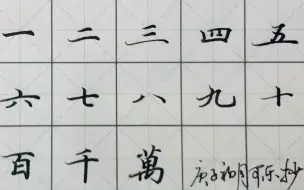 一 二 三 四 五
六 七 八 九 十
百 千 萬 庚子初月